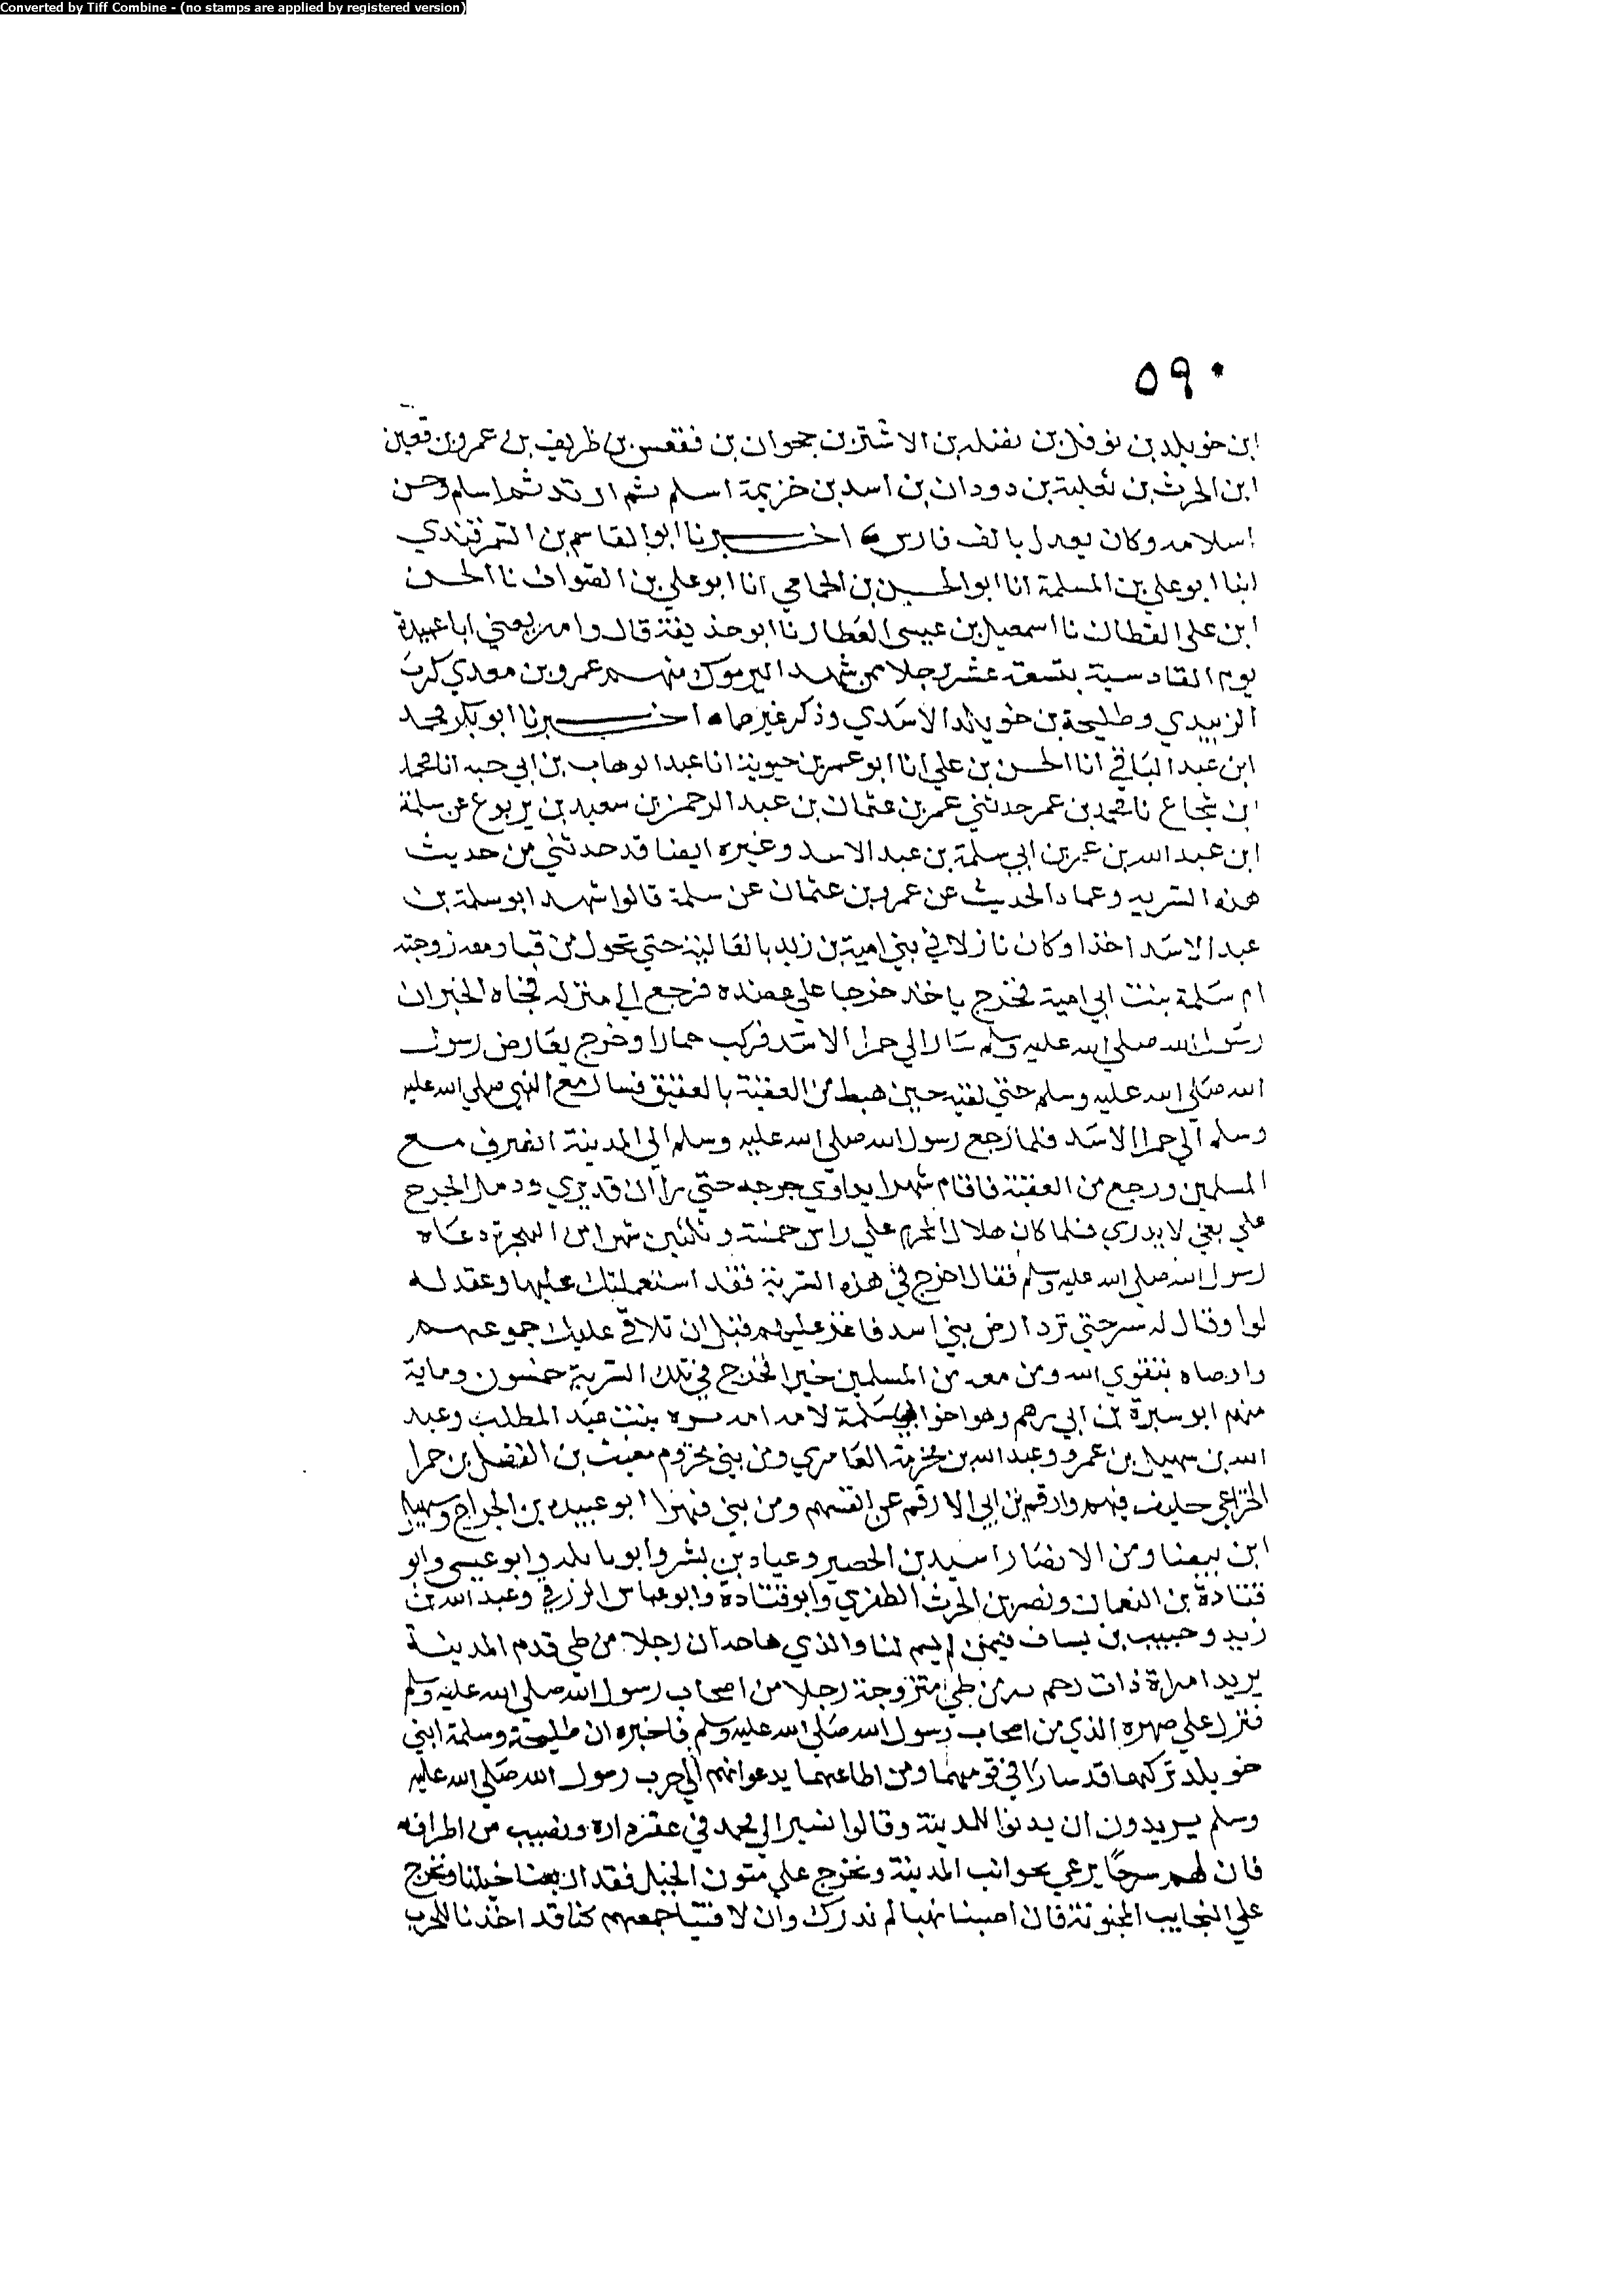 Converted by Tiff Combine - (no stamps are applied by registered version)
٥٩٠
ابن خويلد بن نوفل بن نضله بن الاشتر بن جحوان بن فقعس بن ظريف بن عمرو بن قعين
ابن الحرث بن ثعلبة بن دودان بن اسد بن خزيمة اسلم ثم ارتد ثم اسلم وحسن
اسلامه وكان يعدل بالف فارس اخبرنا ابو القاسم بن السمرقندي
ابنا ابو علي بن المسلمة انا ابو الحسين بن الحمامي انا ابو علي بن الصواف نا الحسن
ابن علي القطان نا اسمعيل بن عيسى العطار نا ابو حذيفة قال وامد يعني ابا عبيدة
يوم القادسية بتسعة عشر رجلا ممن شهد اليرموك منهم عمرو بن معدي كرب
الزبيدي وطليحة بن خويلد الاسدي وذكر غيرهما اخبرنا ابو بكر محمد
ابن عبد الباقي انا الحسن بن علي انا ابو عمر بن حيوية انا عبد الوهاب بن ابي حيه انا محمد
ابن شجاع نا محمد بن عمر حدثني عمر بن عثمان بن عبد الرحمن بن سعيد بن يربوع عن سلمة
ابن عبد الله بن عمر بن ابي سلمة بن عبد الاسد وغيره ايضا قد حدثني من حديث
هذه السريه وعماد الحديث عن عمرو بن عثمان عن سلمة قالوا شهد ابو سلمة بن
عبد الاسد احدا وكان نازلا في بني امية بن زيد بالعالية حتي تحول من قبا ومعه زوجته
ام سلمة بنت ابي امية فخرج باحد جرحا علي عضده فرجع الي منزله فجاه الخبر ان
رسول الله صلي الله عليه وسلم سار الي حمرا الاسد فركب حمارا وخرج يعارض رسول
الله صلي الله عليه وسلم حتي لقيه حين هبط من العقبة بالعقيق فسار مع النبي صلي الله عليه
وسلم الي حمرا الاسد فلما رجع رسول الله صلي الله عليه وسلم الي المدينة انصرف مع
المسلمين ورجع من العقبة فاقام شهرا يداوي جرحه حتي راا ان قد بري ودمل الجرح
علي بغي لا يدري فلما كان هلال المحرم علي راس خمسة وثلثين شهرا من الهجرة دعاه
رسول الله صلي الله عليه وسلم فقال اخرج في هذه السرية فقد استعملتك عليها وعقد له
لوا وقال له سر حتي ترد ارض بني اسد فاغز عليهم قبل ان تلاقي عليك جموعهم
واوصاه بتقوي الله ومن معه من المسلمين خيرا فخرج في تلك السرية خمسون وماية
منهم ابو سبرة بن ابي رهم وهو اخو ابي سلمة لامه امه بره بنت عبد المطلب وعبد
الله بن سهيل بن عمرو وعبد الله بن مخرمة العامري ومن بني مخزوم معتب بن الفضل بن حمرا
الخزاعي حليف فيهم وارقم بن ابي الارقم عن انفسهم ومن بني فهر ابو عبيده بن الجراح وسهيل
ابن بيضا ومن الانصار اسيد بن الحصير وعباد بن بشر وابو نايله وابو عبسى وابو
قتادة بن النعمان ونصر بن الحرث الظفري وابو قتادة وابو عياس الزرقي وعبد الله بن
زيد وحبيب بن يساف فيمن لم يسم لنا والذي هاجه ان رجلا من طي قدم المدينة
يريد امراة ذات رحم به من طي متزوجة رجلا من اصحاب رسول الله صلي الله عليه وسلم
فنزل علي صهره الذي من اصحاب رسول الله صلي الله عليه وسلم فاخبره ان طليحة وسلمة ابني
خويلد تركهما قد سارا في قومهما ومن اطاعهما يدعوانهم الي حرب رسول الله صلي الله عليه
وسلم يريدون ان يدنوا للمدينة وقالوا نسير الي محمد في عقر داره ونصيب من اطرافه
فان لهم سرحا يرعي بجوانب المدينة ونخرج علي متون الخيل فقد اربعنا خيلنا ونخرج
علي النجايب المجنونة فان اصبنا نهبا لم ندرك وان لاقينا جمعهم كنا قد اخذنا للحرب